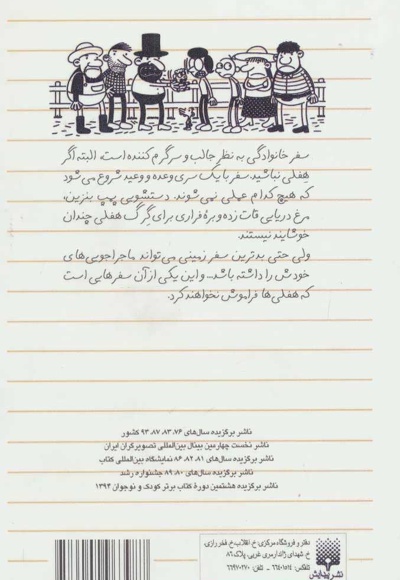 سفر خانوادگی به نظر جالب و سرگرم کننده است، البته اگر
هِفلی نباشید. سفر با یک سری وعده و وعید شروع می شود
که هیچ کدام عملی نمی شوند. دستشویی پمپ بنزین،
مرغ دریایی قات زده و بره فراری برای گِرگ هفلی چندان
خوشایند نیستند.
ولی حتی بدترین سفر زمینی می تواند ماجراجویی های
خودش را داشته باشد... و این یکی از آن سفرهایی است
که هفلی ها فراموش نخواهند کرد.
ناشر برگزیده سال‌های ۷۶، ۸۳، ۸۷، ۹۳ کشور
ناشر نخست چهارمین بینال بین‌المللی تصویرگران ایران
ناشر برگزیده سال‌های ۸۱، ۸۲، ۸۶ نمایشگاه بین‌المللی کتاب
ناشر برگزیده سال‌های ۸۰، ۸۹ جشنواره رشد
ناشر برگزیده هشتمین دورهٔ کتاب برتر کودک و نوجوان ۱۳۹۴
دفتر و فروشگاه مرکزی: خ. انقلاب، خ. فخررازی
خ. شهدای ژاندارمری غربی، پلاک ۸۶
تلفکس: ۶۶۴۰۱۵۱۴ - تلفن: ۶۶۹۷۰۲۷۰
نشر پیدایش